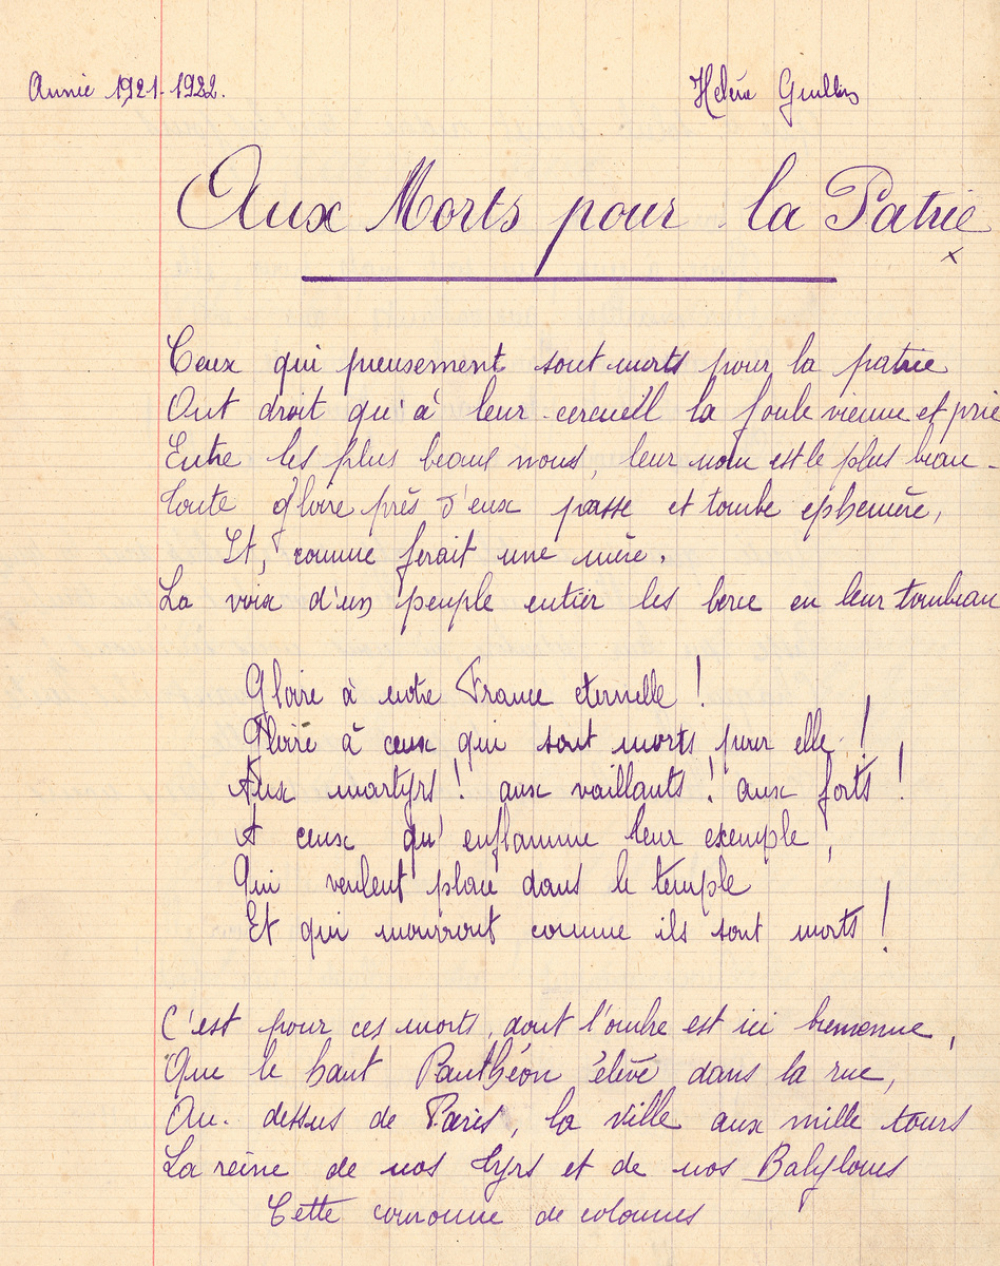 Année 1921-1922.
Hélène Guillin
Aux Morts pour la Patrie
x
Ceux qui pieusement sont morts pour la patrie
Ont droit qu'à leur cercueil la foule vienne et prie
Entre les plus beaux noms, leur nom est le plus beau -
Toute gloire près d'eux passe et tombe ephemère,
Et, comme ferait une mère.
La voix d'un peuple entier les berce en leur tombeau
Gloire à notre France eternelle !
Gloire à ceux qui sont morts pour elle !
Aux martyrs ! aux vaillants ! aux forts !
A ceux qu'enflamme leur exemple ,
Qui veulent place dans le temple
Et qui mourront comme ils sont morts !
C'est pour ces morts, dont l'ombre est ici bienvenue,
Que le haut Panthéon élève dans la rue,
Au. dessus de Paris, la ville aux mille tours
La reine de nos Tyrs et de nos Babylones
Cette couronne de colonnes